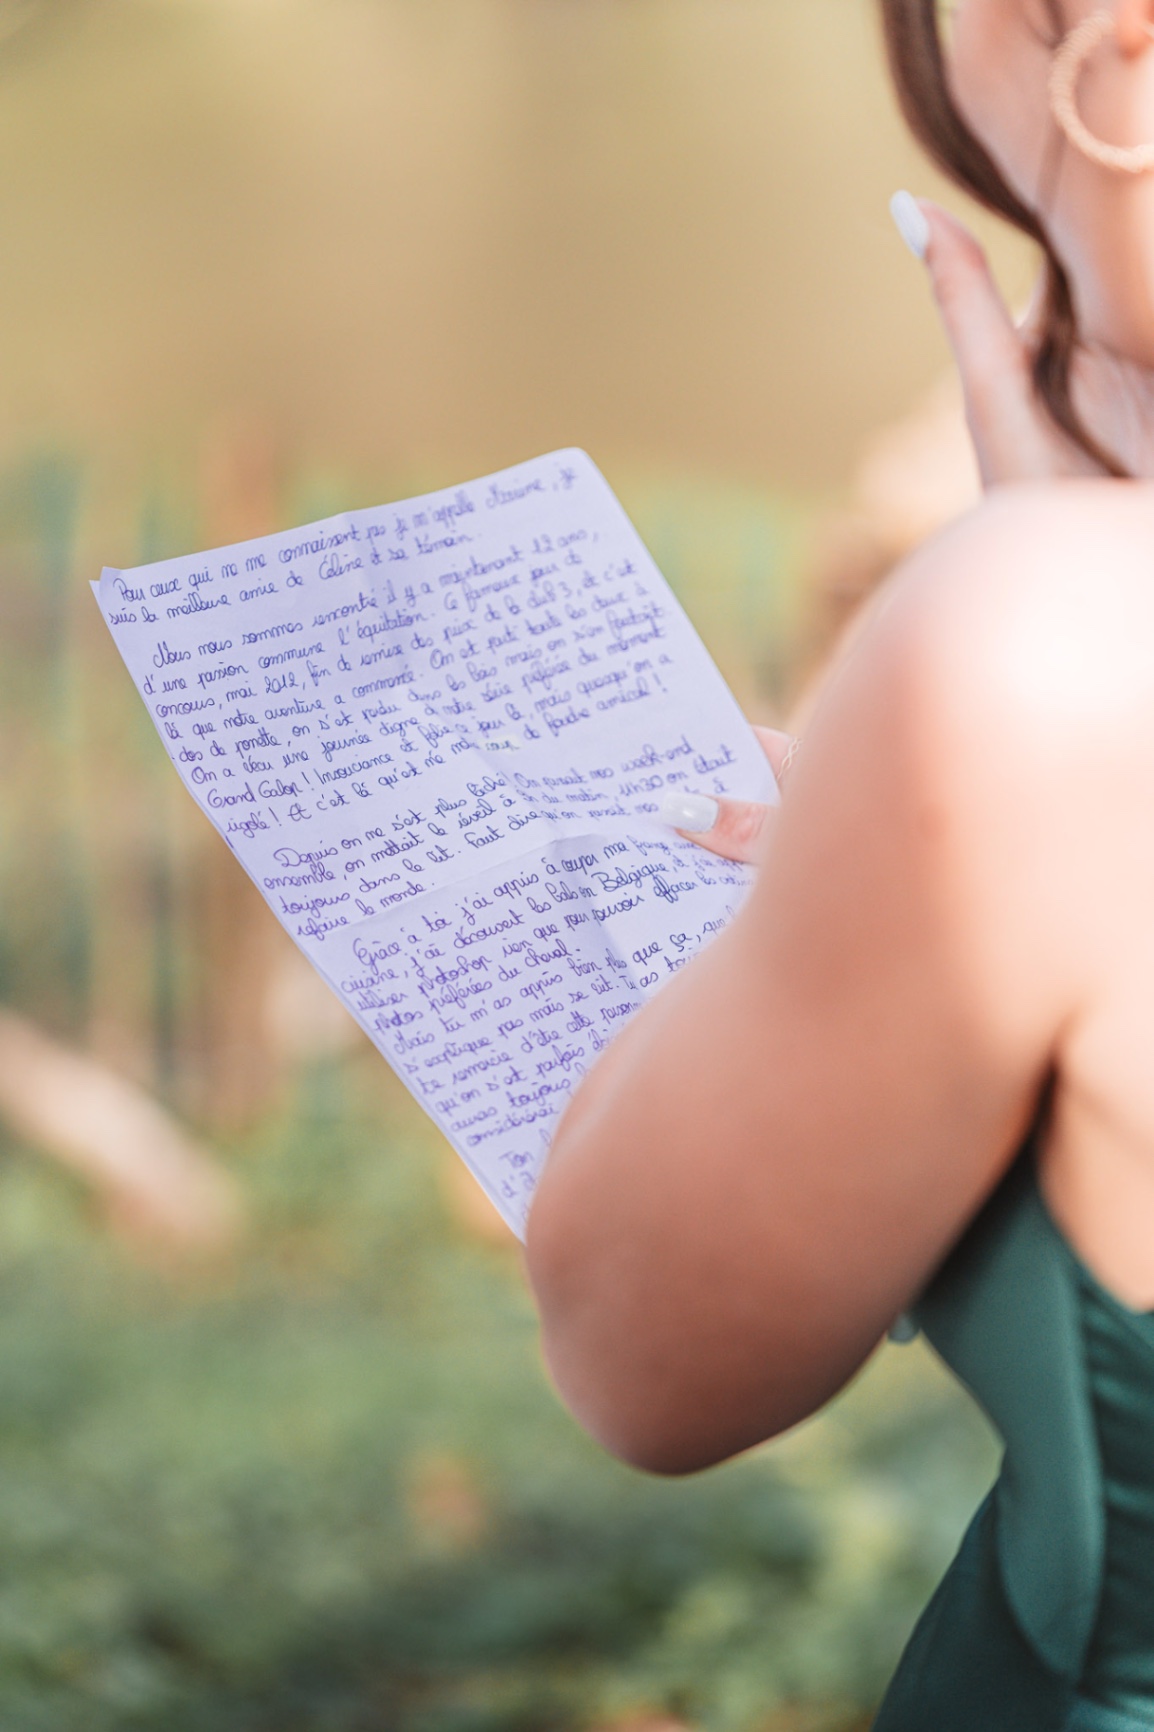 Pour ceux qui ne me connaissent pas je m'appelle, je
suis la meilleure amie de Céline et sa témoin.
Nous nous sommes rencontré il y a maintenant 12 ans,
d'une passion commune l'équitation. Ce fameux jour de
concours, mai 2012, fin de remise des prix de la club 3, et c'est
là que notre aventure a commencé. On est parti toute les deux à
dos de ponette, on s'est perdu dans les bois mais on s'en foutait.
On a vécu une journée digne de notre série préférée du moment
Grand Galop! Insouciance et folie ce jour là, mais quesqu'on a
rigolé! Et c'est là qu'est né mon coup de foudre amical!
Depuis on ne s'est plus lâché! On passait nos week-end
ensemble, on mettait le réveil à du matin, 11h30 on était
toujours dans le lit. Faut dire qu'on passait nos à
refaire le monde.
Grâce à toi j'ai appris à couper ma
cuisine, j'ai découvert les bals en Belgique, et j'ai
utiliser photoshop rien que pour pouvoir effacer les
photos préférées du cheval.
Mais tu m'as appris bien plus que ça,
s'explique pas mais se vit. Tu as
te remercie d'être cette
qu'on s'est parfois
auras toujours
considérée
Ton
d'